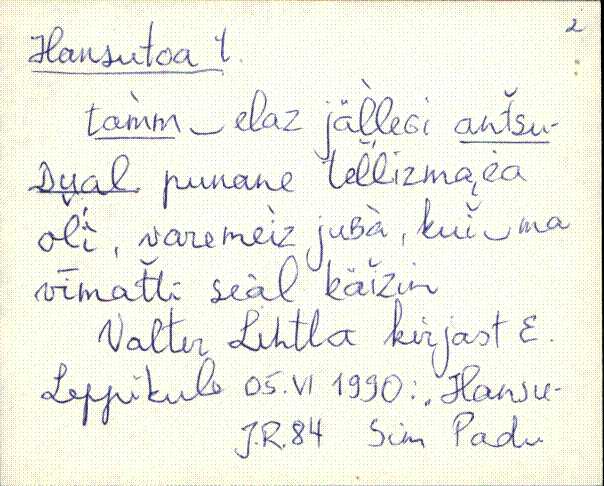 2
Hansutoa 1.
tàmm‿elaz jäl̀legi an̆tsu-
Dual punane tel̆lizmaea
olì, varemeìz jubà, kuì‿ma
vīmaťti seàl käìzin
Valter Lihtla kirjast E.
Leppikule 05.VI 1990: „Hansu-
J.R.84 Sim Padu